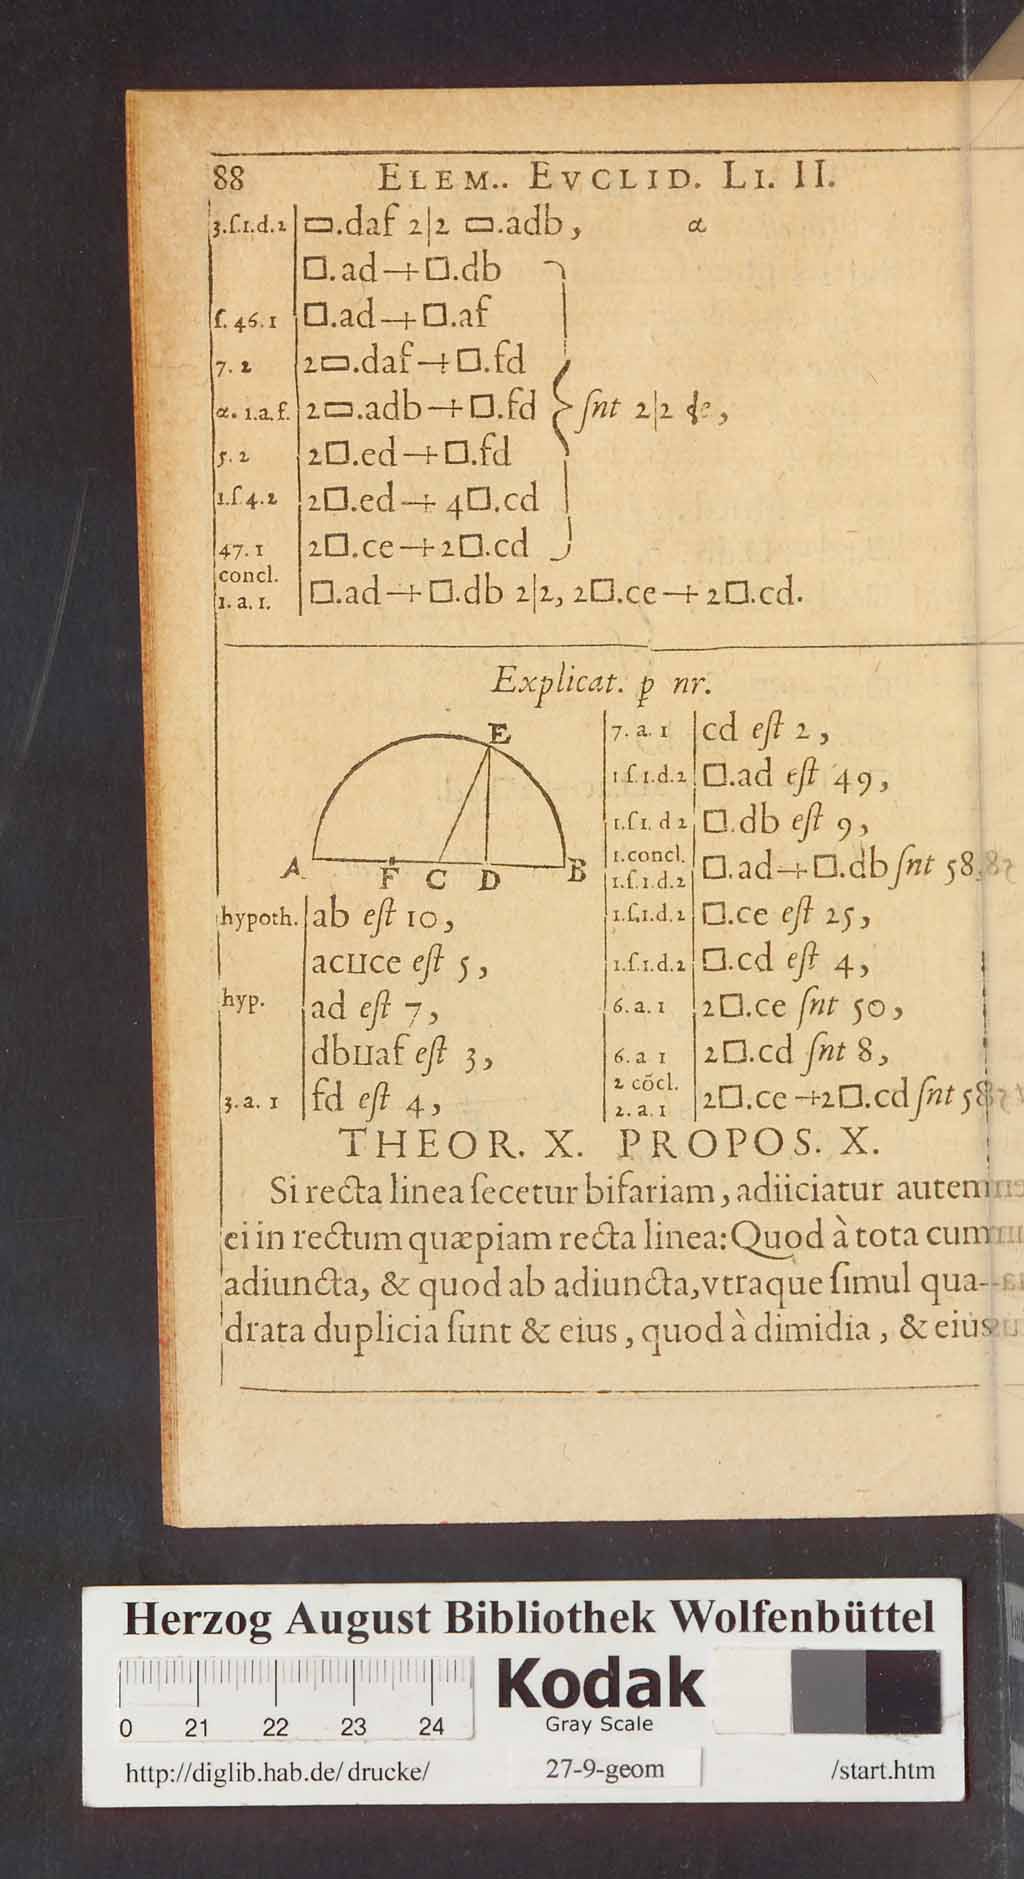 88 ELEM.. EVCLID. LI. II.
3.ſ.1.d.2 ▭.daf 2|2 ▭.adb, α
□.ad+□.db
ſ. 46.1 □.ad+□.af
7. 2 2▭.daf+□.fd
α. 1.a.f. 2▭.adb+□.fd ſnt 2|2 ſe,
5. 2 2□.ed+□.fd
1.ſ.4.2 2□.ed+4□.cd
47. 1 2□.ce+2□.cd
concl.
1. a. 1. □.ad+□.db 2|2, 2□.ce+2□.cd.
Explicat. ꝑ nr.
E
A F C D B
hypoth. ab eſt 10,
acııce eſt 5,
hyp. ad eſt 7,
dbııaf eſt 3,
3. a. 1 fd eſt 4,
7. a. 1 cd eſt 2,
1.ſ.1.d.2 □.ad eſt 49,
1.ſ1. d 2 □.db eſt 9,
1.concl.
1.ſ.1.d.2 □.ad+□.db ſnt 58.
1.ſ,1.d.2 □.ce eſt 25,
1.ſ.1.d.2 □.cd eſt 4,
6. a. 1 2□.ce ſnt 50,
6. a 1 2□.cd ſnt 8,
2 cōcl.
2. a. 1 2□.ce+2□.cd ſnt 58
THEOR. X. PROPOS. X.
Si recta linea ſecetur bifariam, adiiciatur autem
ei in rectum quæpiam recta linea: Quod à tota cum
adiuncta, & quod ab adiuncta, vtraque ſimul qua-
drata duplicia ſunt & eius, quod à dimidia, & eius
Herzog August Bibliothek Wolfenbüttel
0 21 22 23 24
Kodak
Gray Scale
http://diglib.hab.de/ drucke/ 27-9-geom /start.htm